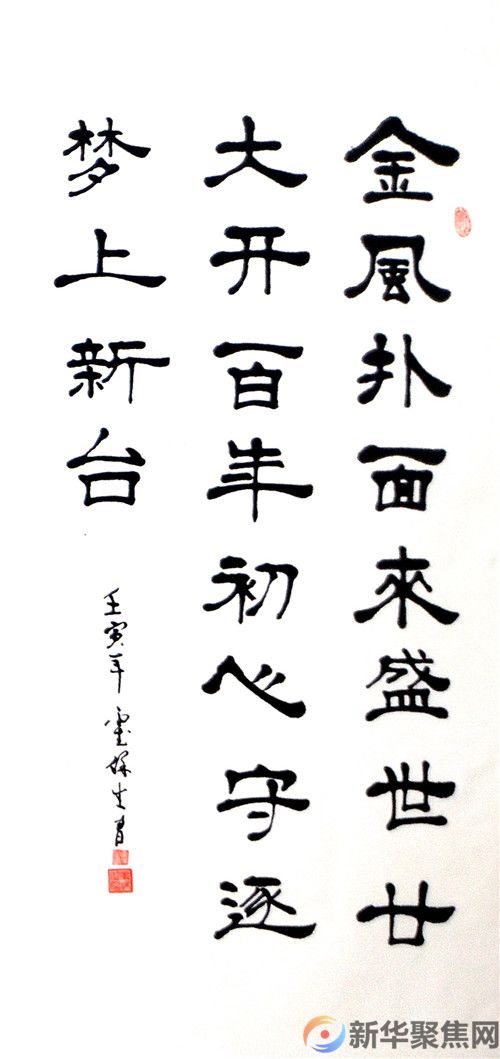 金風扑面來盛世廿
大开百年初心守逐
梦上新台
壬寅年
新华聚焦网